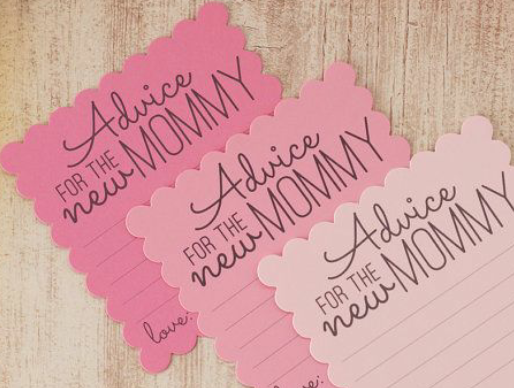 Advice
FOR THE
new MOMMY
love:
Advice
FOR THE
new MOMMY
Advice
FOR THE
new MOMMY